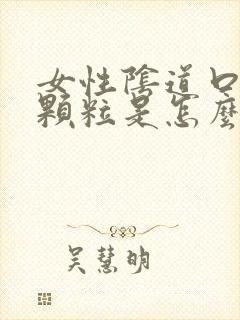 女性陰道口
顆粒是怎麼
吳慧明